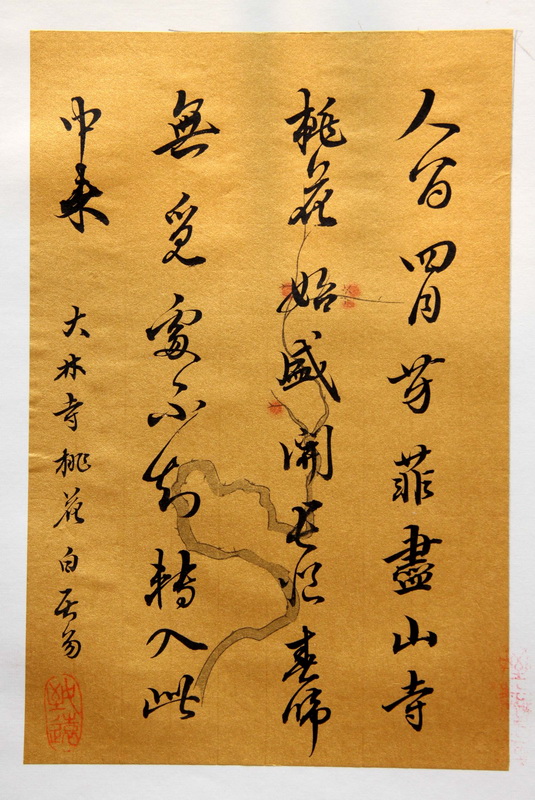 人間四月芳菲盡山寺
桃花始盛開長恨春歸
無覓處不知轉入此
中來
大林寺桃花 白居易